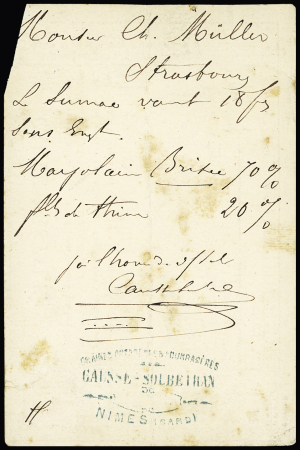 Monsieur Ch. Müller
Strasbourg
L Sumac vaut 18 f
Sans Engt.
Marjolain Brisée 70 %
flles de thim 20 %
j'ai l'honr de
GRAINES FOURRAGÈRES
CAUSSE-SOUBEIRAN
NIMES (GARD)
H